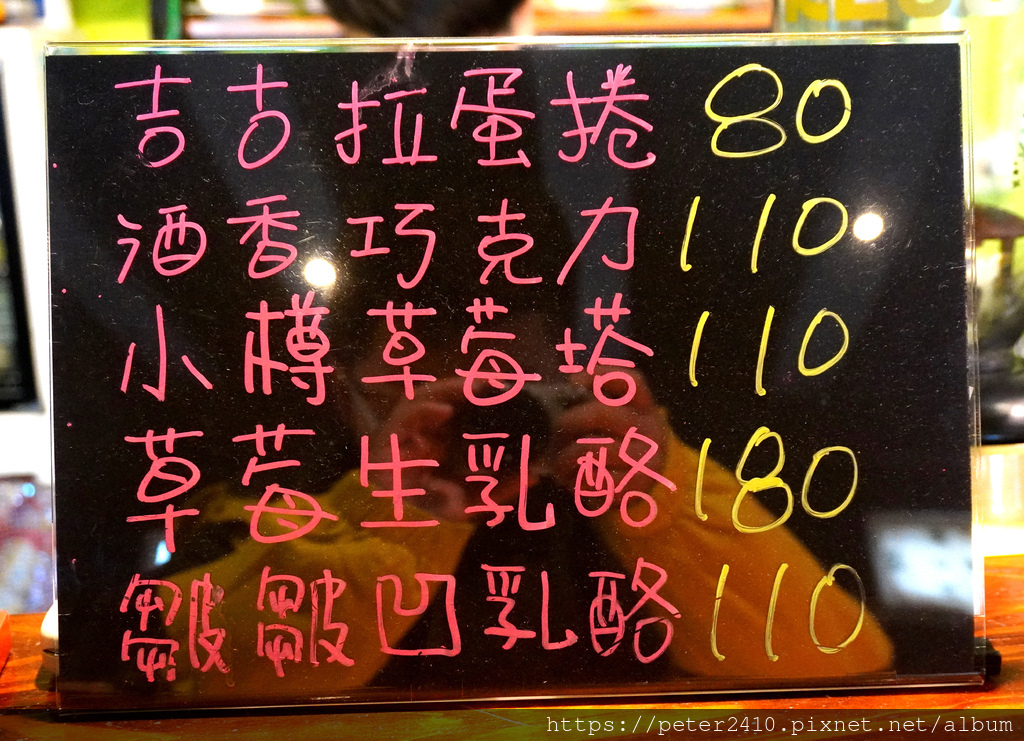 吉古拉蛋捲 80
酒香巧克力 110
小樽草莓塔 110
草莓生乳酪 180
皺皺凹乳酪 110
https://peter2410.pixnet.net/album